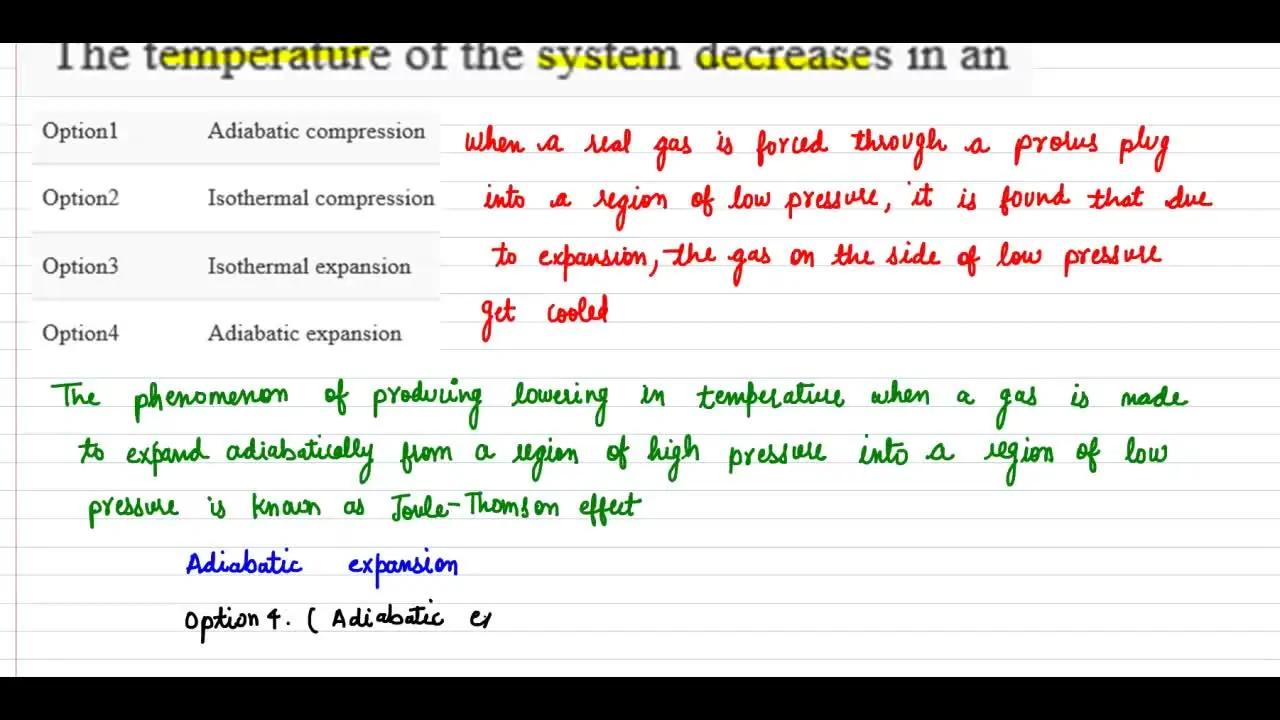 The temperature of the system decreases in an
Option1 Adiabatic compression
Option2 Isothermal compression
Option3 Isothermal expansion
Option4 Adiabatic expansion
When a real gas is forced through a prous plug
into a region of low pressure, it is found that due
to expansion, the gas on the side of low pressure
get cooled
The phenomenon of producing lowering in temperature when a gas is made
to expand adiabatically from a region of high pressure into a region of low
pressure is known as Joule-Thomson effect
Adiabatic expansion
Option 4. ( Adiabatic ex